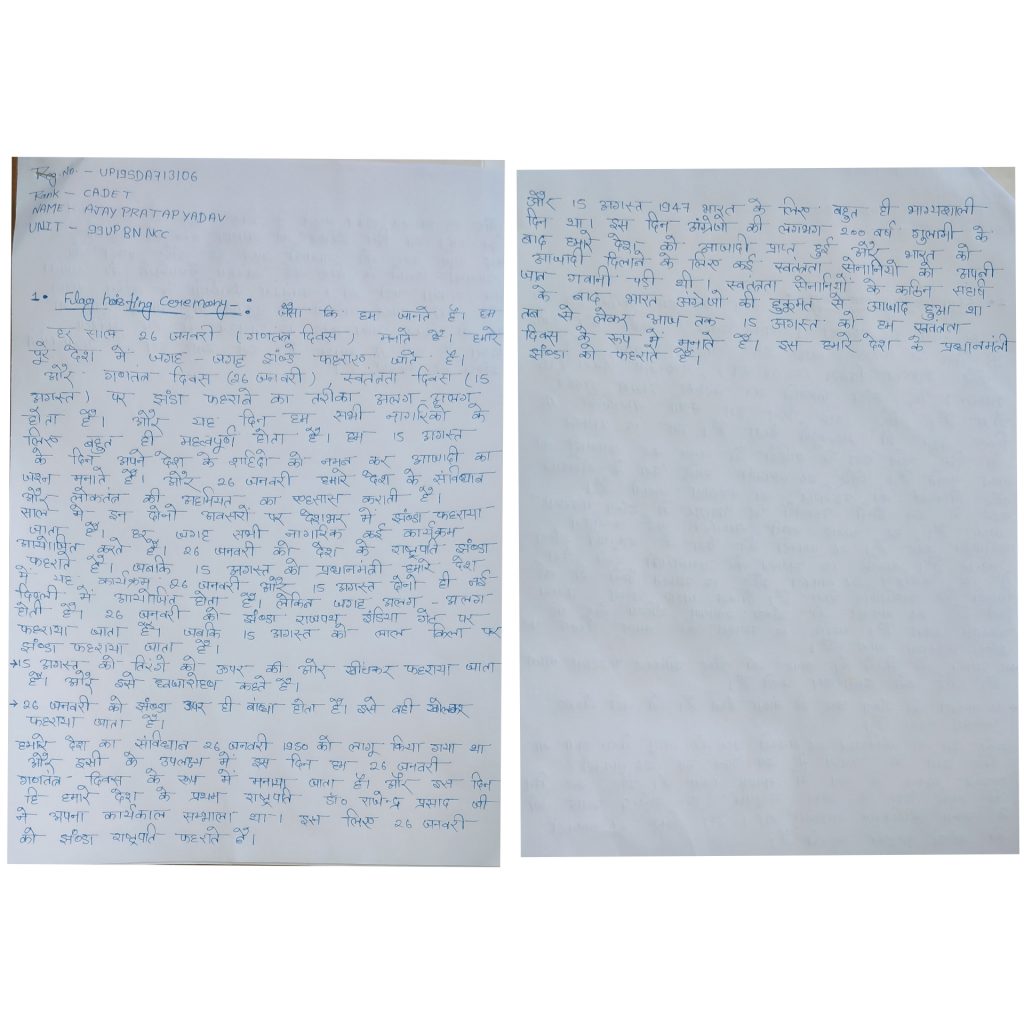 Reg No. - UP19SDA713106
Rank - CADET
NAME - AJAY PRATAP YADAV
UNIT - 93UP BN NCC
1. Flag hoisting Ceremony -: जैसा कि हम जानते है। हम
हर साल 26 जनवरी (गणतंत्र दिवस) मनाते हैं। हमारे
पूरे देश में जगह - जगह झंण्डे फहराए जाते है।
और गणतंत्र दिवस (26 जनवरी), स्वतंत्रता दिवस (15
अगस्त) पर झंडा फहराने का तरीका अलग - अलग
होता है। और यह दिन हम सभी नागरिको के
लिए बहुत ही महत्वपूर्ण होता है। हम 15 अगस्त
के दिन अपने देश के शहिदो को नमन कर आजादी का
जश्न मनाते है। और 26 जनवरी हमारे देश के संविधान
और लोकतंत्र की अहमियत का एहसास कराती है।
साल मे इन दोनो अवसरों पर देशभर में झंण्डा फहराया
जाता है। हर जगह सभी नागरिक कई कार्यक्रम
आयोजित करते है। 26 जनवरी को देश के राष्ट्रपति झंण्डा
फहराते है। जबकि 15 अगस्त को प्रधानमंत्री हमारे देश
में यह कार्यक्रम 26 जनवरी और 15 अगस्त दोनो ही नई
दिल्ली में आयोजित होता है। लेकिन जगह अलग - अलग
होती है। 26 जनवरी को झंण्डा राजपथ इंडिया गेट पर
फहराया जाता है। जबकि 15 अगस्त को लाल किला पर
झंण्डा फहराया जाता है।
→15 अगस्त को तिरंगे को ऊपर की और खीचकर फहराया जाता
है। और इसे ध्वजारोहण कहते है।
→ 26 जनवरी को झंण्डा उपर ही बांधा होता है। इसे वही खोलकर
फहराया जाता है।
हमारे देश का संविधान 26 जनवरी 1950 को लागू किया गया था
और इसी के उपलक्ष्य में इस दिन हम 26 जनवरी
गणतंत्र - दिवस के रूप में मनाया जाता है। और इस दिन
हि हमारे देश के प्रथम राष्ट्रपति डॉ० राजेन्द्र प्रसाद जी
ने अपना कार्यकाल सम्भाला था। इस लिए 26 जनवरी
को झंण्डा राष्ट्रपति फहराते है।
और 15 अगस्त 1947 भारत के लिए बहुत ही भाग्यशाली
दिन था। इस दिन अंग्रेजो की लगभग 200 वर्ष गुलामी के
बाद हमारे देश को आजादी प्राप्त हुई और भारत को
आजादी दिलाने के लिए कई स्वतंत्रता सेनानियो को अपनी
जान गवानी पडी थी। स्वतंत्रता सेनानियो के कठिन संघर्ष
के बाद भारत अंग्रेजो की हुकूमत से आजाद हुआ था
तब से लेकर आज तक 15 अगस्त को हम स्वतंत्रता
दिवस के रूप में मनाते है। इस हमारे देश के प्रधानमंत्री
झंण्डा को फहराते है।